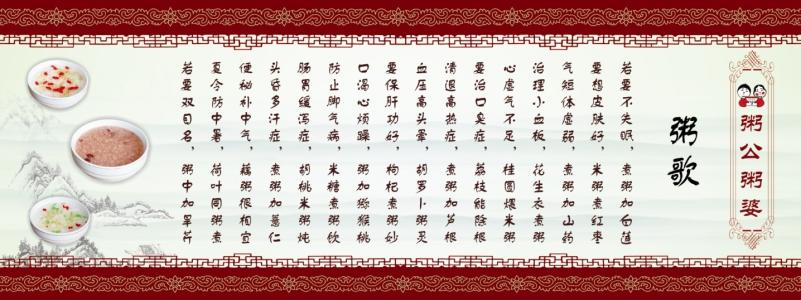 粥公粥婆
粥歌
若要不失眠，煮粥加白莲
要想皮肤好，米粥煮红枣
气短体虚弱，煮粥加山药
治理小血板，花生衣煮粥
心虚气不足，桂圆煨米粥
要治口臭症，荔枝能除根
清退高热症，煮粥加芦根
血压高头晕，胡罗卜粥灵
要保肝功好，枸杞煮粥妙
口渴心烦躁，粥加猕猴桃
防止脚气病，米糖煮粥饮
肠胃缓泻症，胡桃米粥炖
头昏多汗症，煮粥加薏仁
便秘补中气，藕粥很相宜
夏令防中暑，荷叶同粥煮
若要双目名，粥中加旱芹